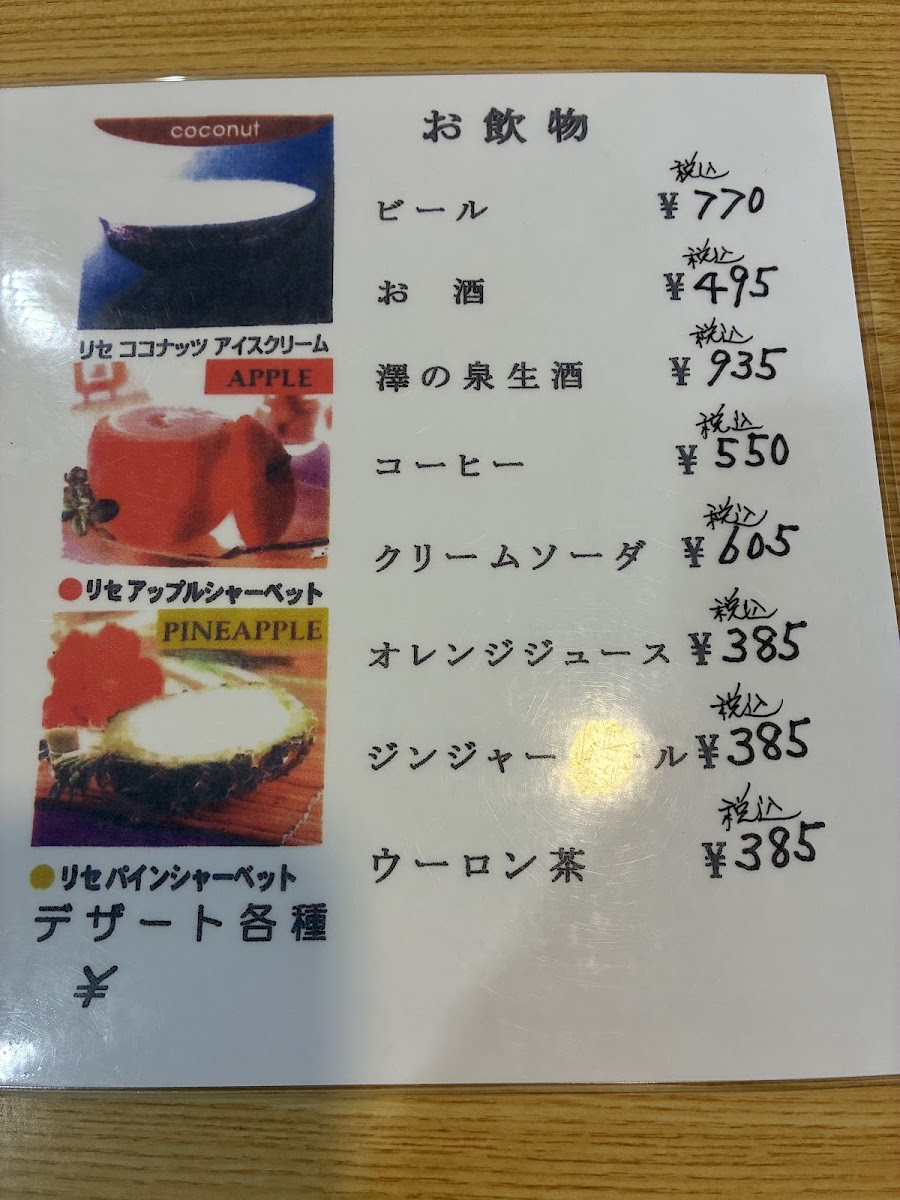 coconut
リセ ココナッツ アイスクリーム
APPLE
●リセ アップルシャーベット
PINEAPPLE
●リセ パインシャーベット
デザート各種
¥
お飲物
税込
ビール ¥770
税込
お酒 ¥495
税込
澤の泉生酒 ¥935
税込
コーヒー ¥550
税込
クリームソーダ ¥605
税込
オレンジジュース ¥385
税込
ジンジャー ル ¥385
税込
ウーロン茶 ¥385